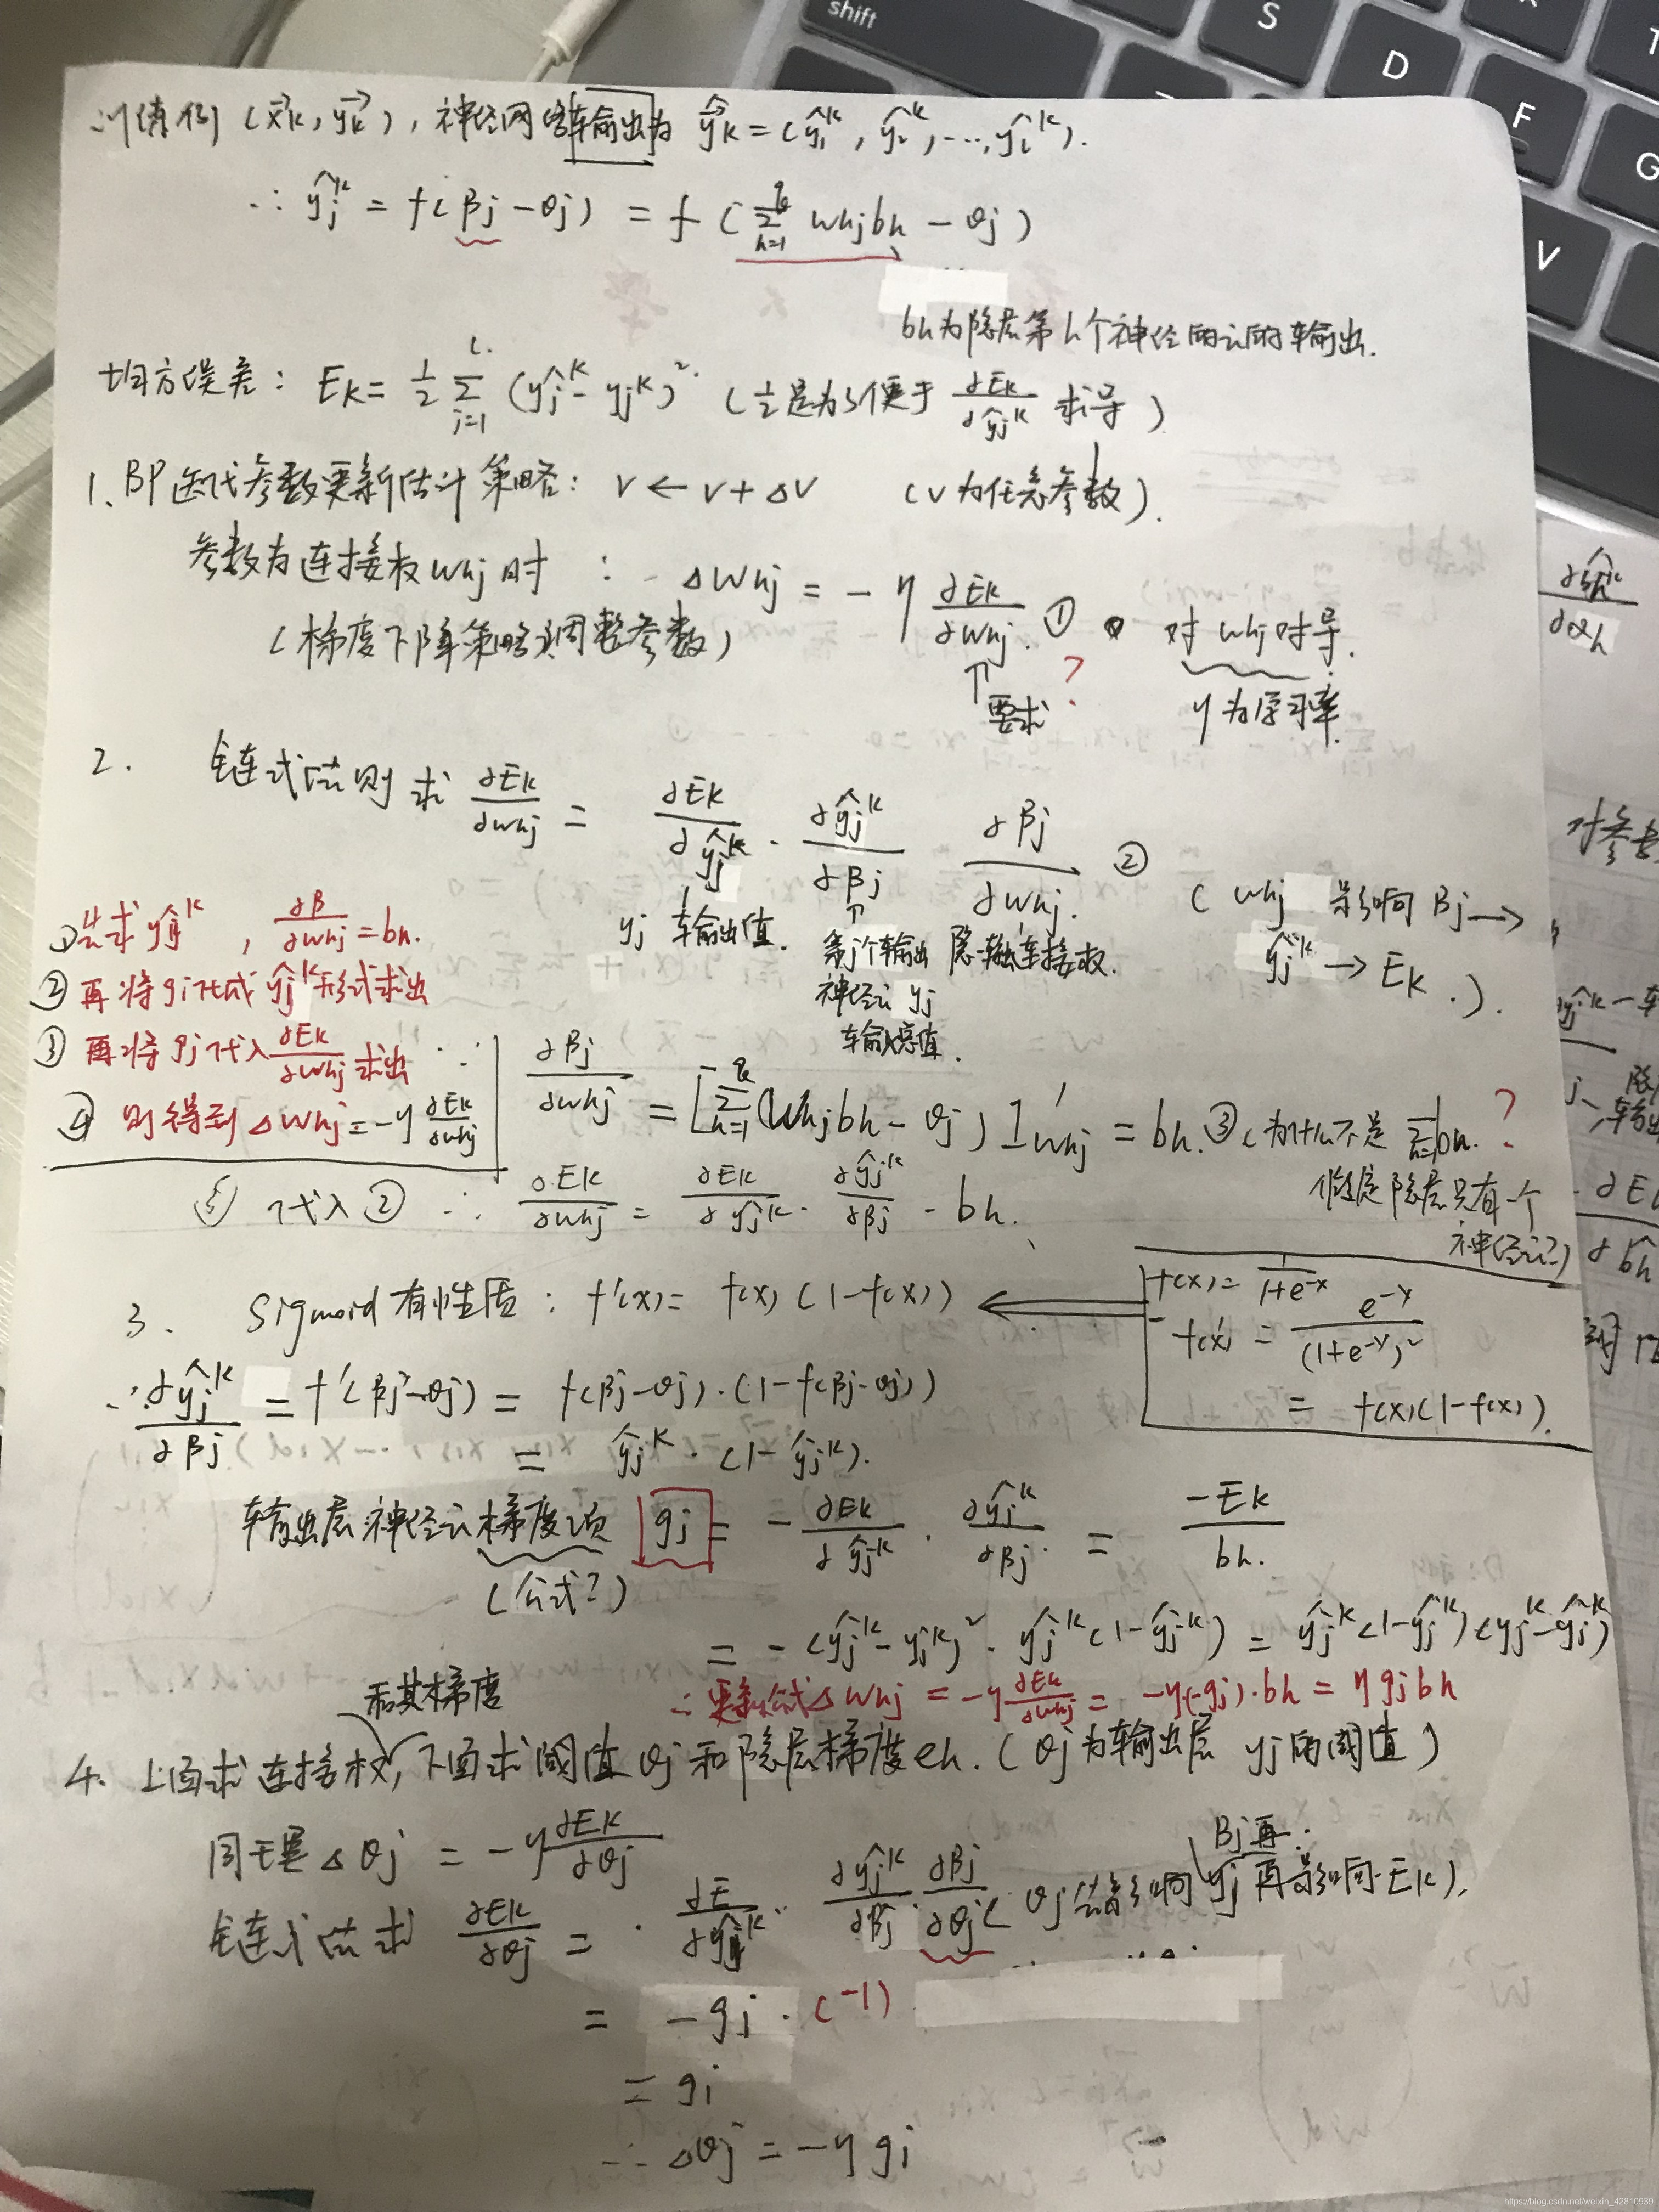 训练例 (x⃗k, y⃗k), 神经网络输出为 ŷk = (ŷ₁ᵏ, ŷ₂ᵏ, ..., ŷₗᵏ).
∴ ŷjᵏ = f(βj - θj) = f(Σ_{h=1}^{q} whj bh - θj)
bh为隐层第h个神经元的输出.
均方误差: Ek = 1/2 Σ_{j=1}^{l} (ŷjᵏ - yjᵏ)². (1/2是为了便于 ∂Ek/∂ŷjᵏ 求导)
1、BP迭代参数更新估计策略: v ← v + Δv (v为任意参数).
参数为连接权whj时 : Δwhj = -η ∂Ek/∂whj. ① 对whj求导.
(梯度下降策略调整参数) ↑ 要求 ? η为学习率.
2. 链式法则求 ∂Ek/∂whj = ∂Ek/∂ŷjᵏ · ∂ŷjᵏ/∂βj ∂βj/∂whj. ②
(whj 影响 βj →
ŷjᵏ → Ek.).
yj 输出值. 第j个输出神经元yj输入值. 隐-输连接权.
①先求ŷjᵏ, ∂β/∂whj = bh.
②再将gj化成ŷjᵏ形式求出
③再将gj代入∂Ek/∂whj求出
④则得到Δwhj = -η ∂Ek/∂whj
∵ ∂βj/∂whj = [Σ_{h=1}^{q}(whjbh - θj)]'whj = bh. ③(为什么不是 Σbh. ?
假定隐层只有一个
神经元?)
⑤ 代入② ∴ ∂Ek/∂whj = ∂Ek/∂ŷjᵏ · ∂ŷjᵏ/∂βj · bh.
3. Sigmoid有性质: f'(x) = f(x)(1-f(x)) ⇐
f(x) = 1/(1+e^-x)
f(x)' = e^-x/(1+e^-x)²
= f(x)(1-f(x)).
∴ ∂ŷjᵏ/∂βj = f'(βj-θj) = f(βj-θj)·(1-f(βj-θj))
= ŷjᵏ · (1-ŷjᵏ).
输出层神经元梯度项 gj = - ∂Ek/∂ŷjᵏ · ∂ŷjᵏ/∂βj. = -Ek/bh.
(公式?)
= -(ŷjᵏ - yjᵏ)² · ŷjᵏ(1-ŷjᵏ) = ŷjᵏ(1-ŷjᵏ)(yjᵏ-ŷjᵏ)
∴ 更新公式Δwhj = -η ∂Ek/∂whj = -η(-gj)·bh = ηgjbh
和其梯度
4. 上面求连接权, 下面求阈值θj和隐层梯度eh. (θj为输出层yj的阈值)
同理Δθj = -η ∂Ek/∂θj
Bj再
链式法求 ∂Ek/∂θj = · ∂E/∂ŷjᵏ · ∂ŷjᵏ/∂βj · ∂βj/∂θj (θj先影响yj再影响Ek).
= -gj · (-1)
= gj
∴ Δθj = -ηgj
∂αh
对参
https://blog.csdn.net/weixin_42810939